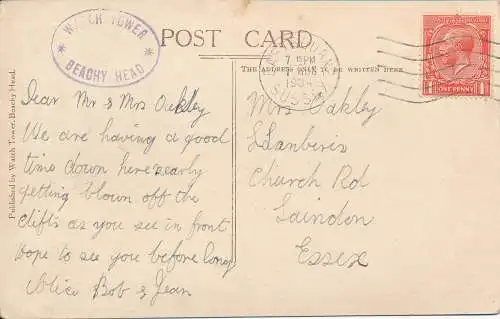 WATCH TOWER
BEACHY HEAD
POST CARD
THE ADDRESS ONLY TO BE WRITTEN HERE
7 PM
1934
SUSSEX
ONE PENNY
Published by Watch Tower, Beachy Head.
Dear Mr & Mrs Oakley
We are having a good
time down here nearly
getting blown off the
clifts as you see in front
hope to see you before long
Alice Bob & Jean
Mrs Oakley
Llanberis
Church Rd
Laindon
Essex